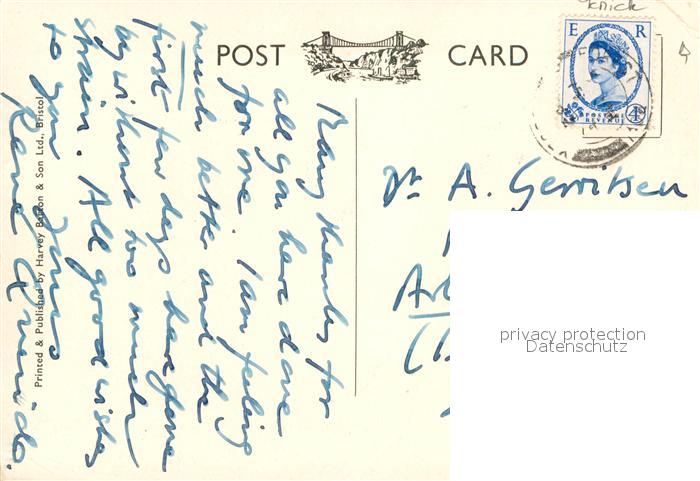 knick
POST CARD
E R
POSTAGE
REVENUE
4D
Many thanks for
all you have done
for me. I am feeling
much better and the
first few days have gone
by without too much
strain. All good wishes
to you
Yours
Dr A. Gerritsen
privacy protection
Datenschutz
Printed & Published by Harvey Barton & Son Ltd., Bristol